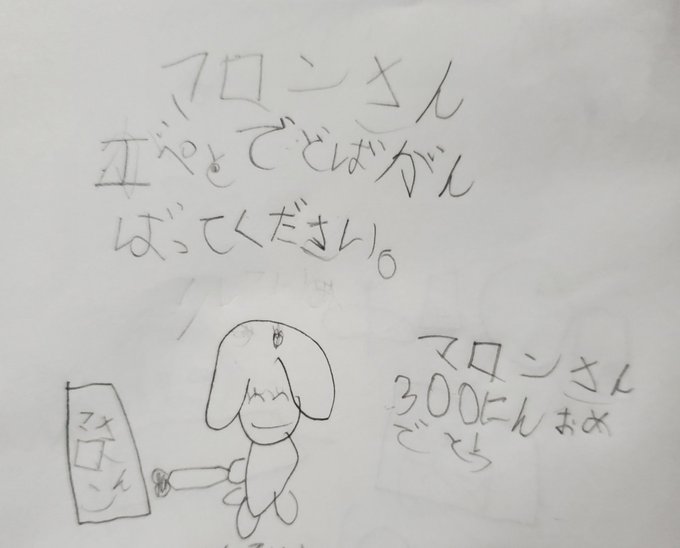 マロンさん
ぺとでどばがん
ばってください。
マロンさん
300にんおめ
でとう
マロン
さん